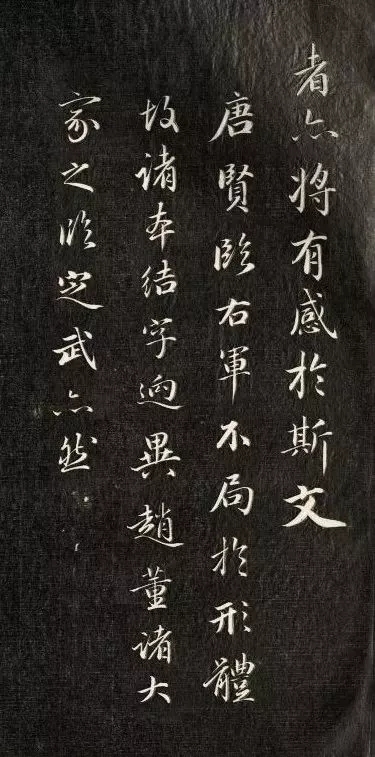 者亦將有感於斯文
唐賢臨右軍不局於形體
故諸本結字迥異趙董諸大
家之臨定武亦然